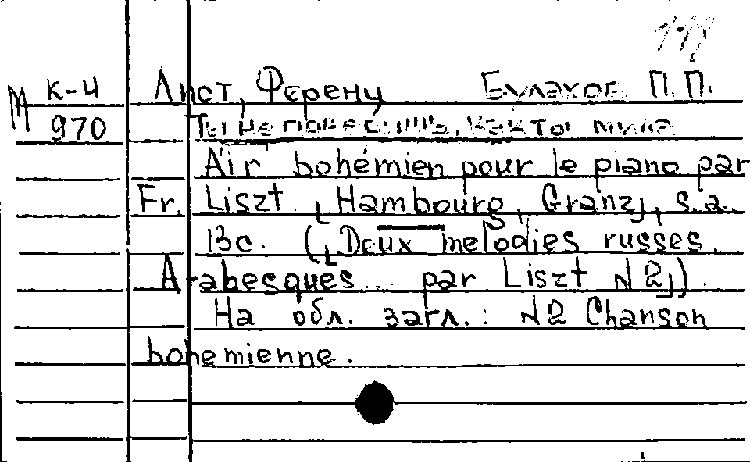 М К-4 Лист, Ференц Булахов П.П.
970 Ты не поверишь, как ты мила
Air bohémien pour le piano par
Fr. Liszt [Hambourg, Granz], s.a.
13с. ([Deux melodies russes.
Arabesques par Liszt №2])
На обл. загл.: №2 Chanson
bohemienne.